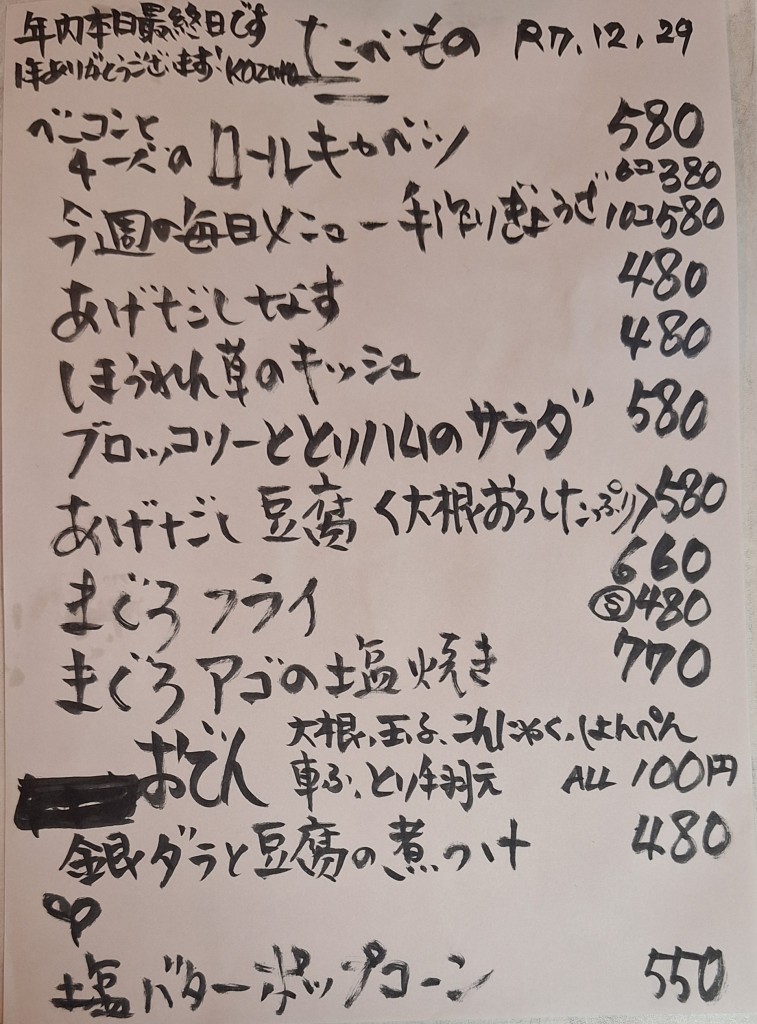 年内本日最終日です
1年ありがとうございます!
たべもの R7.12.29
ベーコンと
チーズの ロールキャベツ 580
6コ380
今週の毎日メニュー手作りぎょうざ 10コ580
あげだしなす 480
ほうれん草のキッシュ 480
ブロッコリーととりハムのサラダ 580
あげだし豆腐〈大根おろしたっぷり〉580
まぐろフライ 660
Ⓢ480
まぐろアゴの塩焼き 770
おでん 大根、玉子、こんにゃく、はんぺん
車ふ、とり手羽元 ALL 100円
銀ダラと豆腐の煮つけ 480
塩バターポップコーン 550